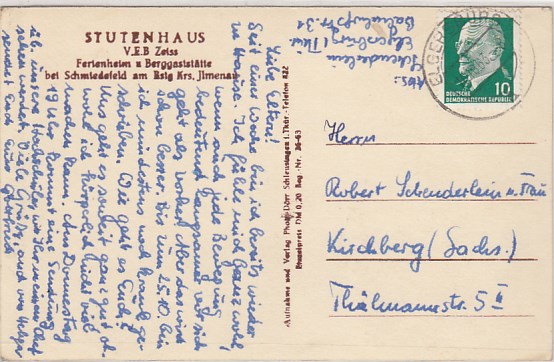 STUTENHAUS
V.E.B Zeiss
Ferienheim u Berggaststätte
bei Schmiedefeld am Rstg Krs. Jlmenau
Abs:
Schenderlein
Elgersburg/Thür.
Bahnhofstr. 31
Liebe Eltern!
Seit einer Woche bin ich bereits wieder
zu Hause. Ich fühle mich ganz wohl,
wenn auch jede Bewegung
bedeutend langsamer vor sich
geht als vorher. Aber das wird
schon besser. Bis zum 25.10. bin
ich mindestens noch krank ge-
schrieben. Wie geht es Euch?
Uns geht es soweit ganz gut ob-
wohl ich körperlich nicht viel
machen kann. Am Donnerstag
19 Uhr kommt eine Sendung
üb. unsere Hochschule
sehen werdet. Viele Grüße, auch von Holger
sendet Euch Euer
Aufnahme und Verlag Photo-Dörr Schleusingen i. Thür.-Telefon 422
Einzelpreis DM 0,20 Reg.-Nr. 26-63
ELGERSBURG
10
DEUTSCHE
DEMOKRATISCHE REPUBLIK
Herrn
Robert Schenderlein u. Frau
Kirchberg (Sachs.)
Thälmannstr. 5 II